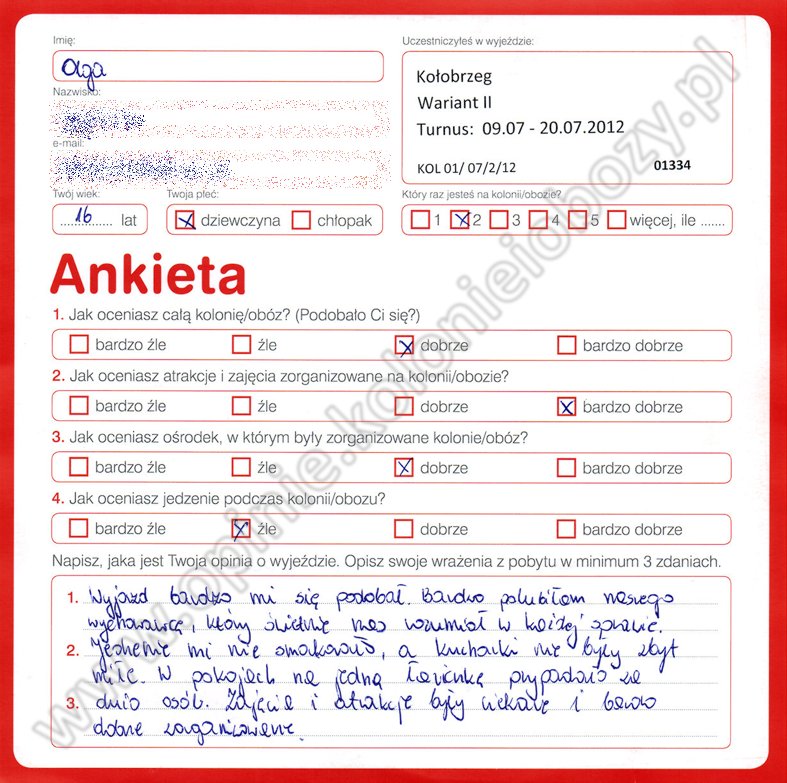 Imię:
Olga
Uczestniczyłeś w wyjeździe:
Kołobrzeg
Wariant II
Turnus: 09.07 - 20.07.2012
KOL 01/ 07/2/12 01334
Nazwisko:
e-mail:
Twój wiek:
16 lat
Twoja płeć:
dziewczyna chłopak
Który raz jesteś na kolonii/obozie?
1 2 3 4 5 więcej, ile .......
Ankieta
1. Jak oceniasz całą kolonię/obóz? (Podobało Ci się?)
bardzo źle źle dobrze bardzo dobrze
2. Jak oceniasz atrakcje i zajęcia zorganizowane na kolonii/obozie?
bardzo źle źle dobrze bardzo dobrze
3. Jak oceniasz ośrodek, w którym były zorganizowane kolonie/obóz?
bardzo źle źle dobrze bardzo dobrze
4. Jak oceniasz jedzenie podczas kolonii/obozu?
bardzo źle źle dobrze bardzo dobrze
Napisz, jaka jest Twoja opinia o wyjeździe. Opisz swoje wrażenia z pobytu w minimum 3 zdaniach.
1. Wyjazd bardzo mi się podobał. Bardzo polubiłam naszego
wychowawcę, który świetnie nas rozumiał w każdej sprawie.
2. Jedzenie mi nie smakowało, a kucharki nie były zbyt
miłe. W pokojach na jedną łazienkę przypadało za
3. dużo osób. Zajęcia i atrakcje były ciekawe i bardzo
dobrze zorganizowane.
www.opinie.kolonieiobozy.pl